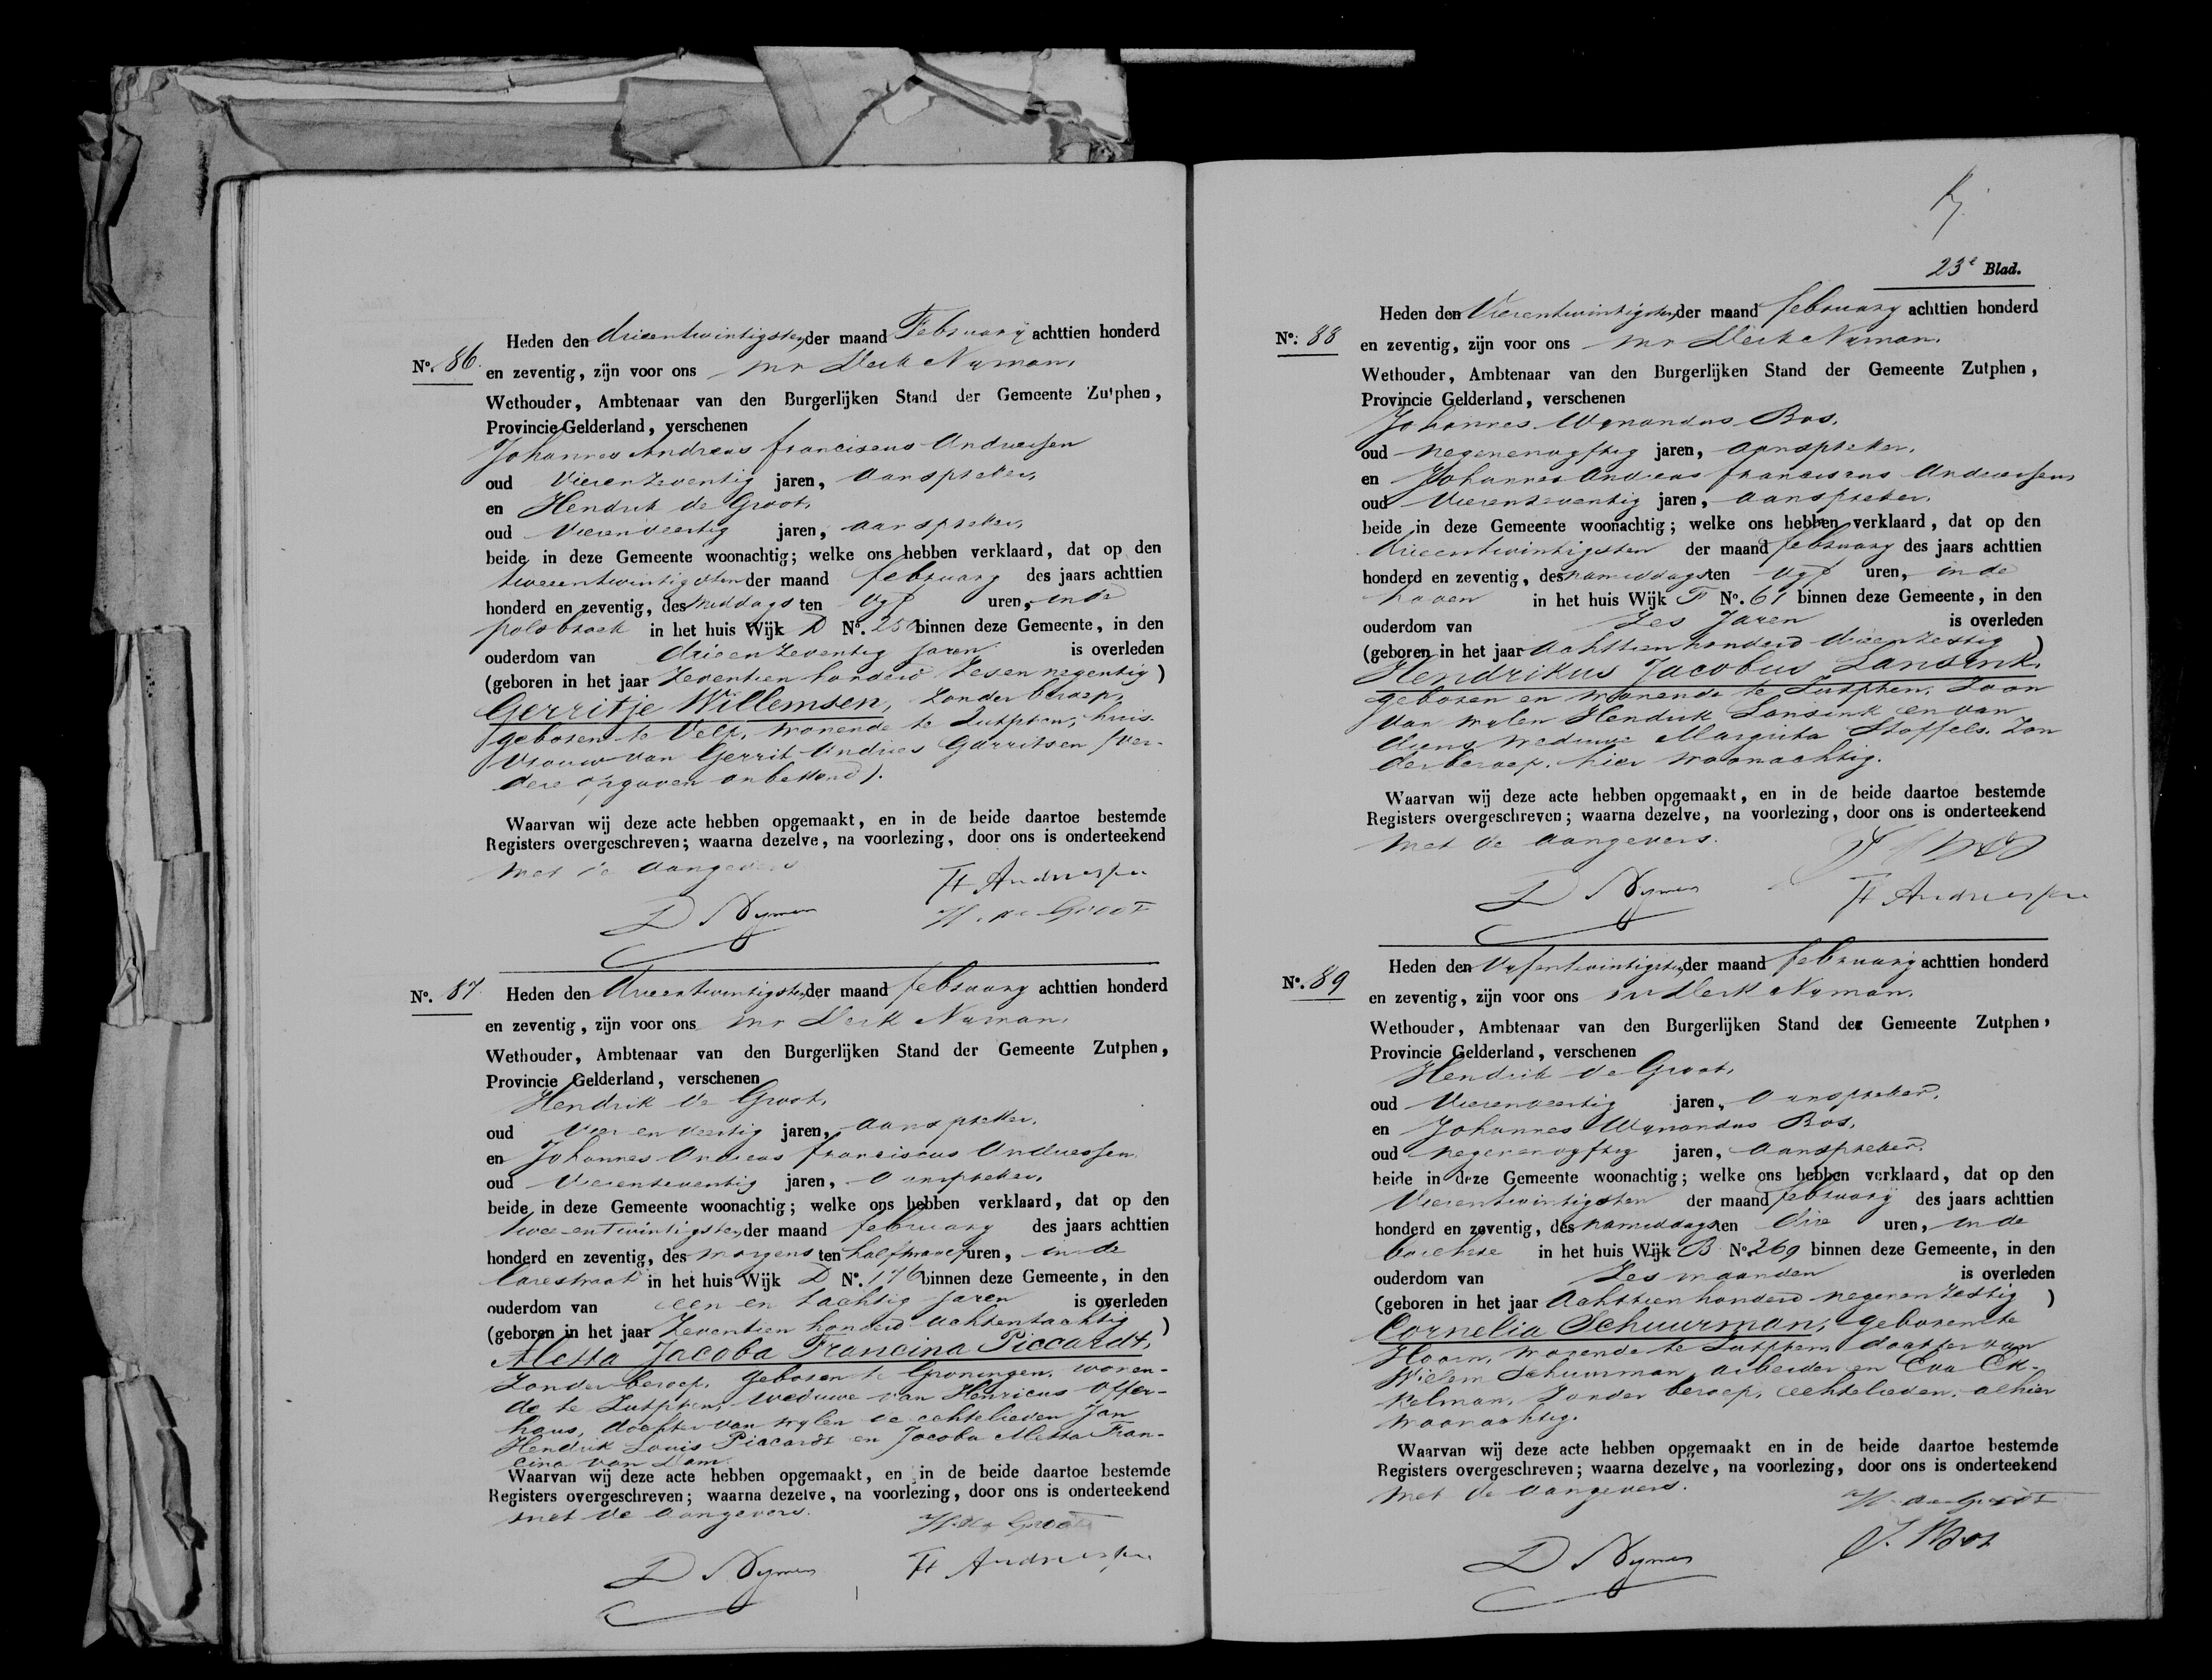 Heden den drieentwintigsten der maand February achttien honderd
No. 86. en zeventig, zijn voor ons Mr Derk Nyman,
Wethouder, Ambtenaar van den Burgerlijken Stand der Gemeente Zutphen,
Provincie Gelderland, verschenen
Johannes Andreas Franciscus Andriessen
oud Vierenzeventig jaren, aanspreker,
en Hendrik de Groot,
oud Vierenveertig jaren, aanspreker,
beide in deze Gemeente woonachtig; welke ons hebben verklaard, dat op den
tweeentwintigsten der maand February des jaars achttien
honderd en zeventig, des middags ten Vyf uren, in de
polsbroek in het huis Wijk D No. 250 binnen deze Gemeente, in den
ouderdom van drieenzeventig jaren is overleden
(geboren in het jaar Zeventien honderd Zesennegentig)
Gerritje Willemsen, Zonder beroep,
geboren te Velp, wonende te Zutphen, huis-
vrouw van Gerrit Andries Garritsen (ver-
dere opgaven onbekend).
Waarvan wij deze acte hebben opgemaakt, en in de beide daartoe bestemde
Registers overgeschreven; waarna dezelve, na voorlezing, door ons is onderteekend
met de aangevers
D Nyman
H. de Groot
No. 87. Heden den drieentwintigsten der maand February achttien honderd
en zeventig, zijn voor ons Mr Derk Nyman,
Wethouder, Ambtenaar van den Burgerlijken Stand der Gemeente Zutphen,
Provincie Gelderland, verschenen
Hendrik de Groot,
oud Vier en Veertig jaren, aanspreker,
en Johannes Andreas Franciscus Andriessen
oud Vierenzeventig jaren, aanspreker,
beide in deze Gemeente woonachtig; welke ons hebben verklaard, dat op den
twee entwintigsten der maand February des jaars achttien
honderd en zeventig, des morgens ten half twaalf uren, in de
Larestraat in het huis Wijk D No. 176 binnen deze Gemeente, in den
ouderdom van een en tachtig jaren is overleden
(geboren in het jaar Zeventien honderd achtentachtig)
Aletta Jacoba Francina Piccardt,
Zonder beroep, geboren te Groningen, wonen-
de te Zutphen, weduwe van Henricus Offer-
haus, dochter van wylen de echtelieden Jan
Hendrik Louis Piccardt en Jacoba Aletta Fran-
cina van Dam.
Waarvan wij deze acte hebben opgemaakt, en in de beide daartoe bestemde
Registers overgeschreven; waarna dezelve, na voorlezing, door ons is onderteekend
met de aangevers.
H. de Groot
D Nyman
23e Blad.
Heden den Vierentwintigsten der maand February achttien honderd
No. 88 en zeventig, zijn voor ons Mr Derk Nyman,
Wethouder, Ambtenaar van den Burgerlijken Stand der Gemeente Zutphen,
Provincie Gelderland, verschenen
Johannes Wynandus Bos,
oud negenenvyftig jaren, aanspreker,
en Johannes Andreas Franciscus Andriessen,
oud Vierenzeventig jaren, aanspreker,
beide in deze Gemeente woonachtig; welke ons hebben verklaard, dat op den
drieentwintigsten der maand February des jaars achttien
honderd en zeventig, des namiddags ten Vyf uren, in de
haven in het huis Wijk F No. 61 binnen deze Gemeente, in den
ouderdom van Zes Jaren is overleden
(geboren in het jaar Achttienhonderd drieenzestig)
Hendrikus Jacobus Lansink,
geboren en wonende te Zutphen, Zoon
van wylen Hendrik Lansink en van
diens weduwe Margrita Stoffels. Zon
der beroep. hier woonachtig.
Waarvan wij deze acte hebben opgemaakt, en in de beide daartoe bestemde
Registers overgeschreven; waarna dezelve, na voorlezing, door ons is onderteekend
met de aangevers.
D Nyman
Heden den Vyfentwintigsten der maand February achttien honderd
No. 89 en zeventig, zijn voor ons Mr Derk Nyman,
Wethouder, Ambtenaar van den Burgerlijken Stand der Gemeente Zutphen,
Provincie Gelderland, verschenen
Hendrik de Groot,
oud Vierenveertig jaren, aanspreker,
en Johannes Wynandus Bos,
oud negenenvyftig jaren, aanspreker,
beide in deze Gemeente woonachtig; welke ons hebben verklaard, dat op den
Vierentwintigsten der maand February des jaars achttien
honderd en zeventig, des namiddags ten drie uren, in de
in het huis Wijk B No. 269 binnen deze Gemeente, in den
ouderdom van Zes maanden is overleden
(geboren in het jaar Achttienhonderd negenenzestig)
Cornelia Schuurman, geboren te
Hoorn, wonende te Zutphen, dochter van
Willem Schuurman, arbeider en Eva Ek-
kelman, Zonder beroep, echtelieden, alhier
woonachtig.
Waarvan wij deze acte hebben opgemaakt en in de beide daartoe bestemde
Registers overgeschreven; waarna dezelve, na voorlezing, door ons is onderteekend
met de aangevers.
H. de Groot
J. W Bos
D Nyman